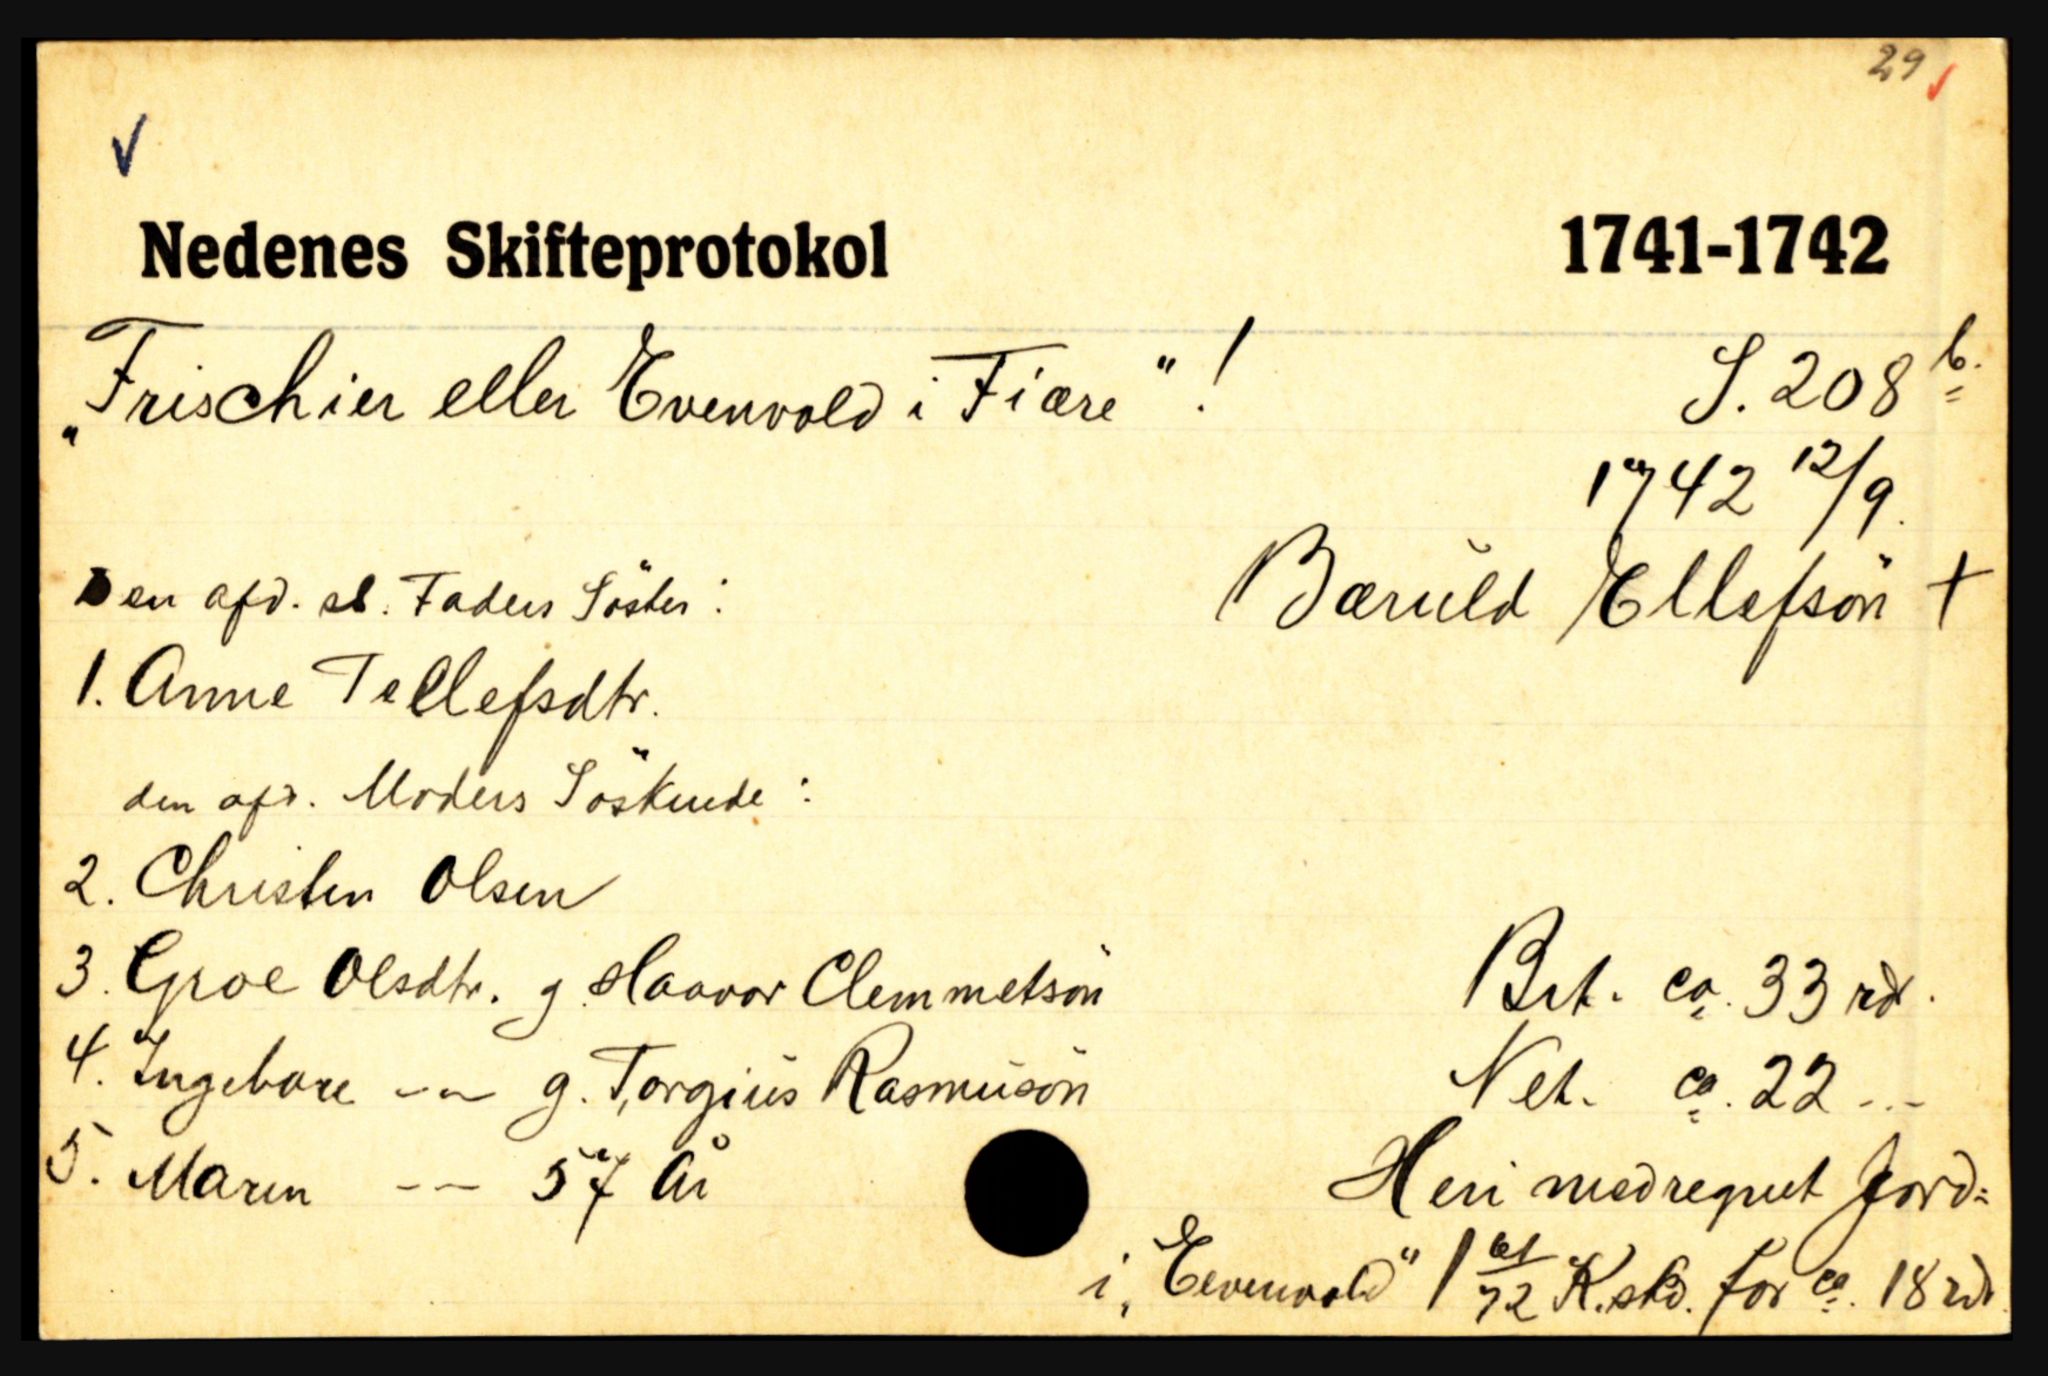 29 ✓
✓
Nedenes Skifteprotokol 1741-1742
„Frischier eller Evenvold i Fiære" ! S. 208 b.
1742 12/9.
Bæruld Ellefsön †
Den afd. sl. Faders Söster:
1. Anne Tellefsdtr.
den afd. Moders Söskende:
2. Christen Olsen
3. Groe Olsdtr. g. Haavor Clemmetsön Brt. ca. 33 rd.
4. Ingebore -"- g. Torgius Rasmusön Net. ca. 22 -"-
5. Maren -"- 57 År Heri medregnet Jord=
i „Eevenvold" 1 61/72 K.skd. for ca. 18 rdr.